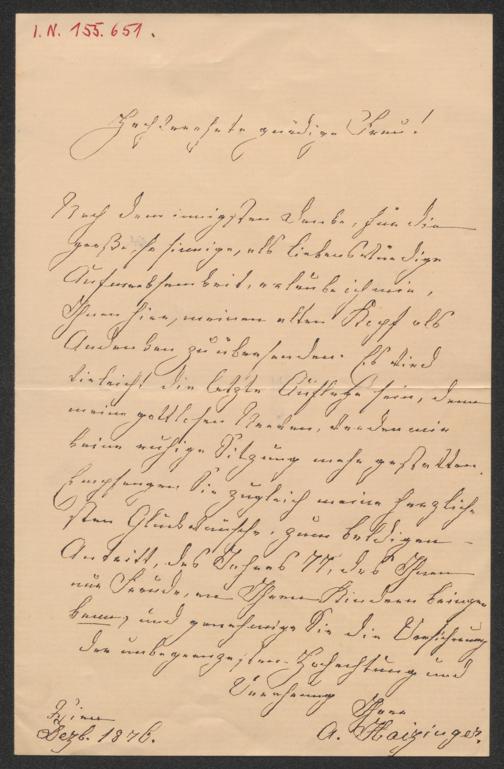 I. N. 155.651.
Hochverehrte gnädige Frau!
Nach dem innigsten Danke, für die
große so sinnige, als liebenswürdige
Aufmerksamkeit, erlaube ich mir,
Ihnen hier, meinen alten Kopf als
Andenken zu übersenden. Es wird
vieleicht die letzte Auflage sein, denn
meine Nerven, werden mir
keine ruhige Sitzung mehr gestatten.
Empfangen Sie zugleich meine herzlich-
sten Glückwünsche, zum baldigen
Antritt, des Jahres 77, das Ihnen
nur Freude, an Ihren Kindern bringen
kann, und genehmige Sie die Versicherung
der unbegrenzesten Hochachtung und
Verehrung
Ihrer
Wien
Dezb. 1876.
A. Haizinger.